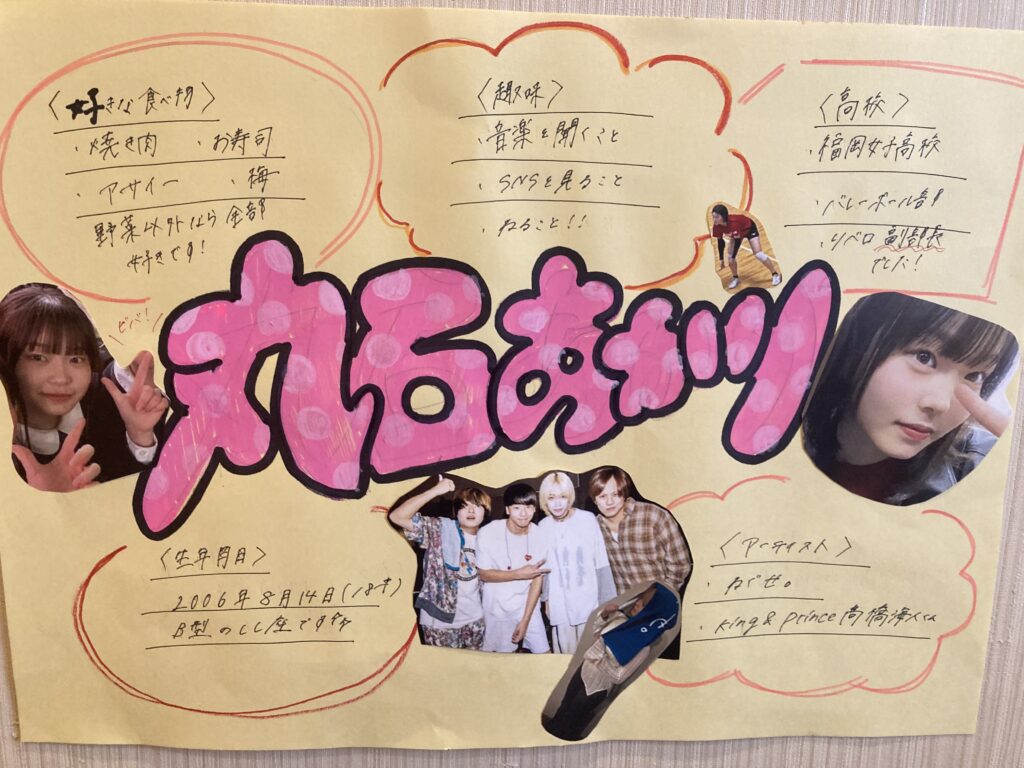 〈好きな食べ物〉
・焼き肉 ・お寿司
・アサイー ・梅
野菜以外なら全部
好きです!
〈趣味〉
・音楽を聞くこと
・SNSを見ること
・ねること!!
〈高校〉
・福岡女子高校
・バレーボール部
・リベロ 副部長
でした!
ビバ!
丸石あかり
〈生年月日〉
2006年8月14日(18才)
B型のしし座です
〈アーティスト〉
・ねぐせ。
・King & Prince 高橋海人くん